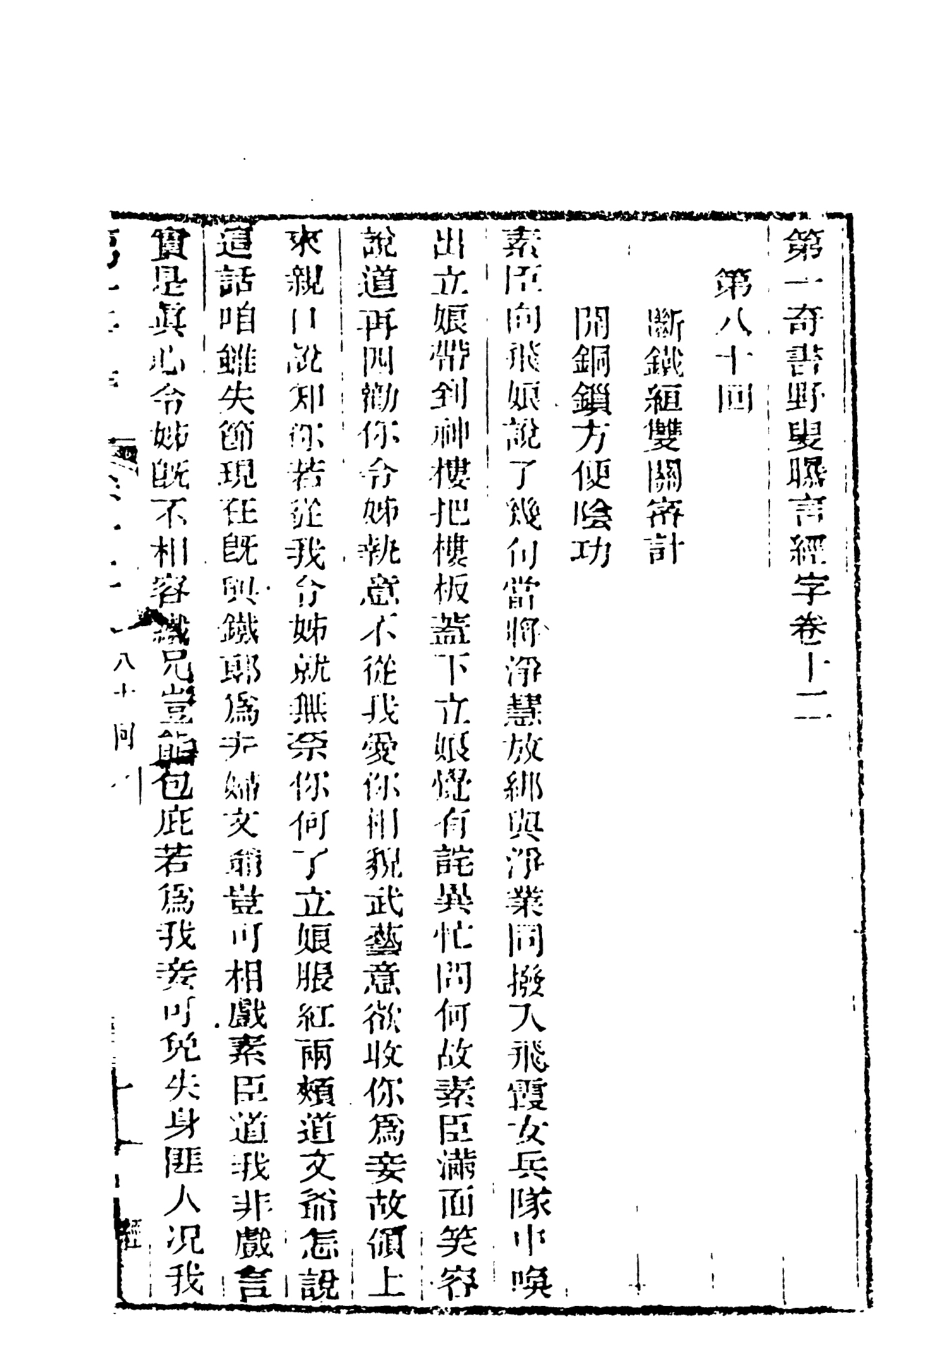 第一奇書野叟曝言經字卷十二
第八十回
斷鐵絙雙關密計
開銅鎖方便陰功
素臣向飛娘說了幾句當將淨慧放綁與淨業同撥入飛霞女兵隊中喚
出立娘帶到神樓把樓板蓋下立娘覺有詫異忙問何故素臣滿面笑容
說道再四勸你令姊執意不從我愛你相貌武藝意欲收你爲妾故領上
來親口說知你若從我令姊就無奈你何了立娘脹紅兩頰道文爺怎說
這話咱雖失節現在旣與鐵郭爲夫婦文爺豈可相戲素臣道我非戲言
實是眞心令姊旣不相容鐵兄豈能包庇若爲我妾可免失身匪人况我
八十回
經